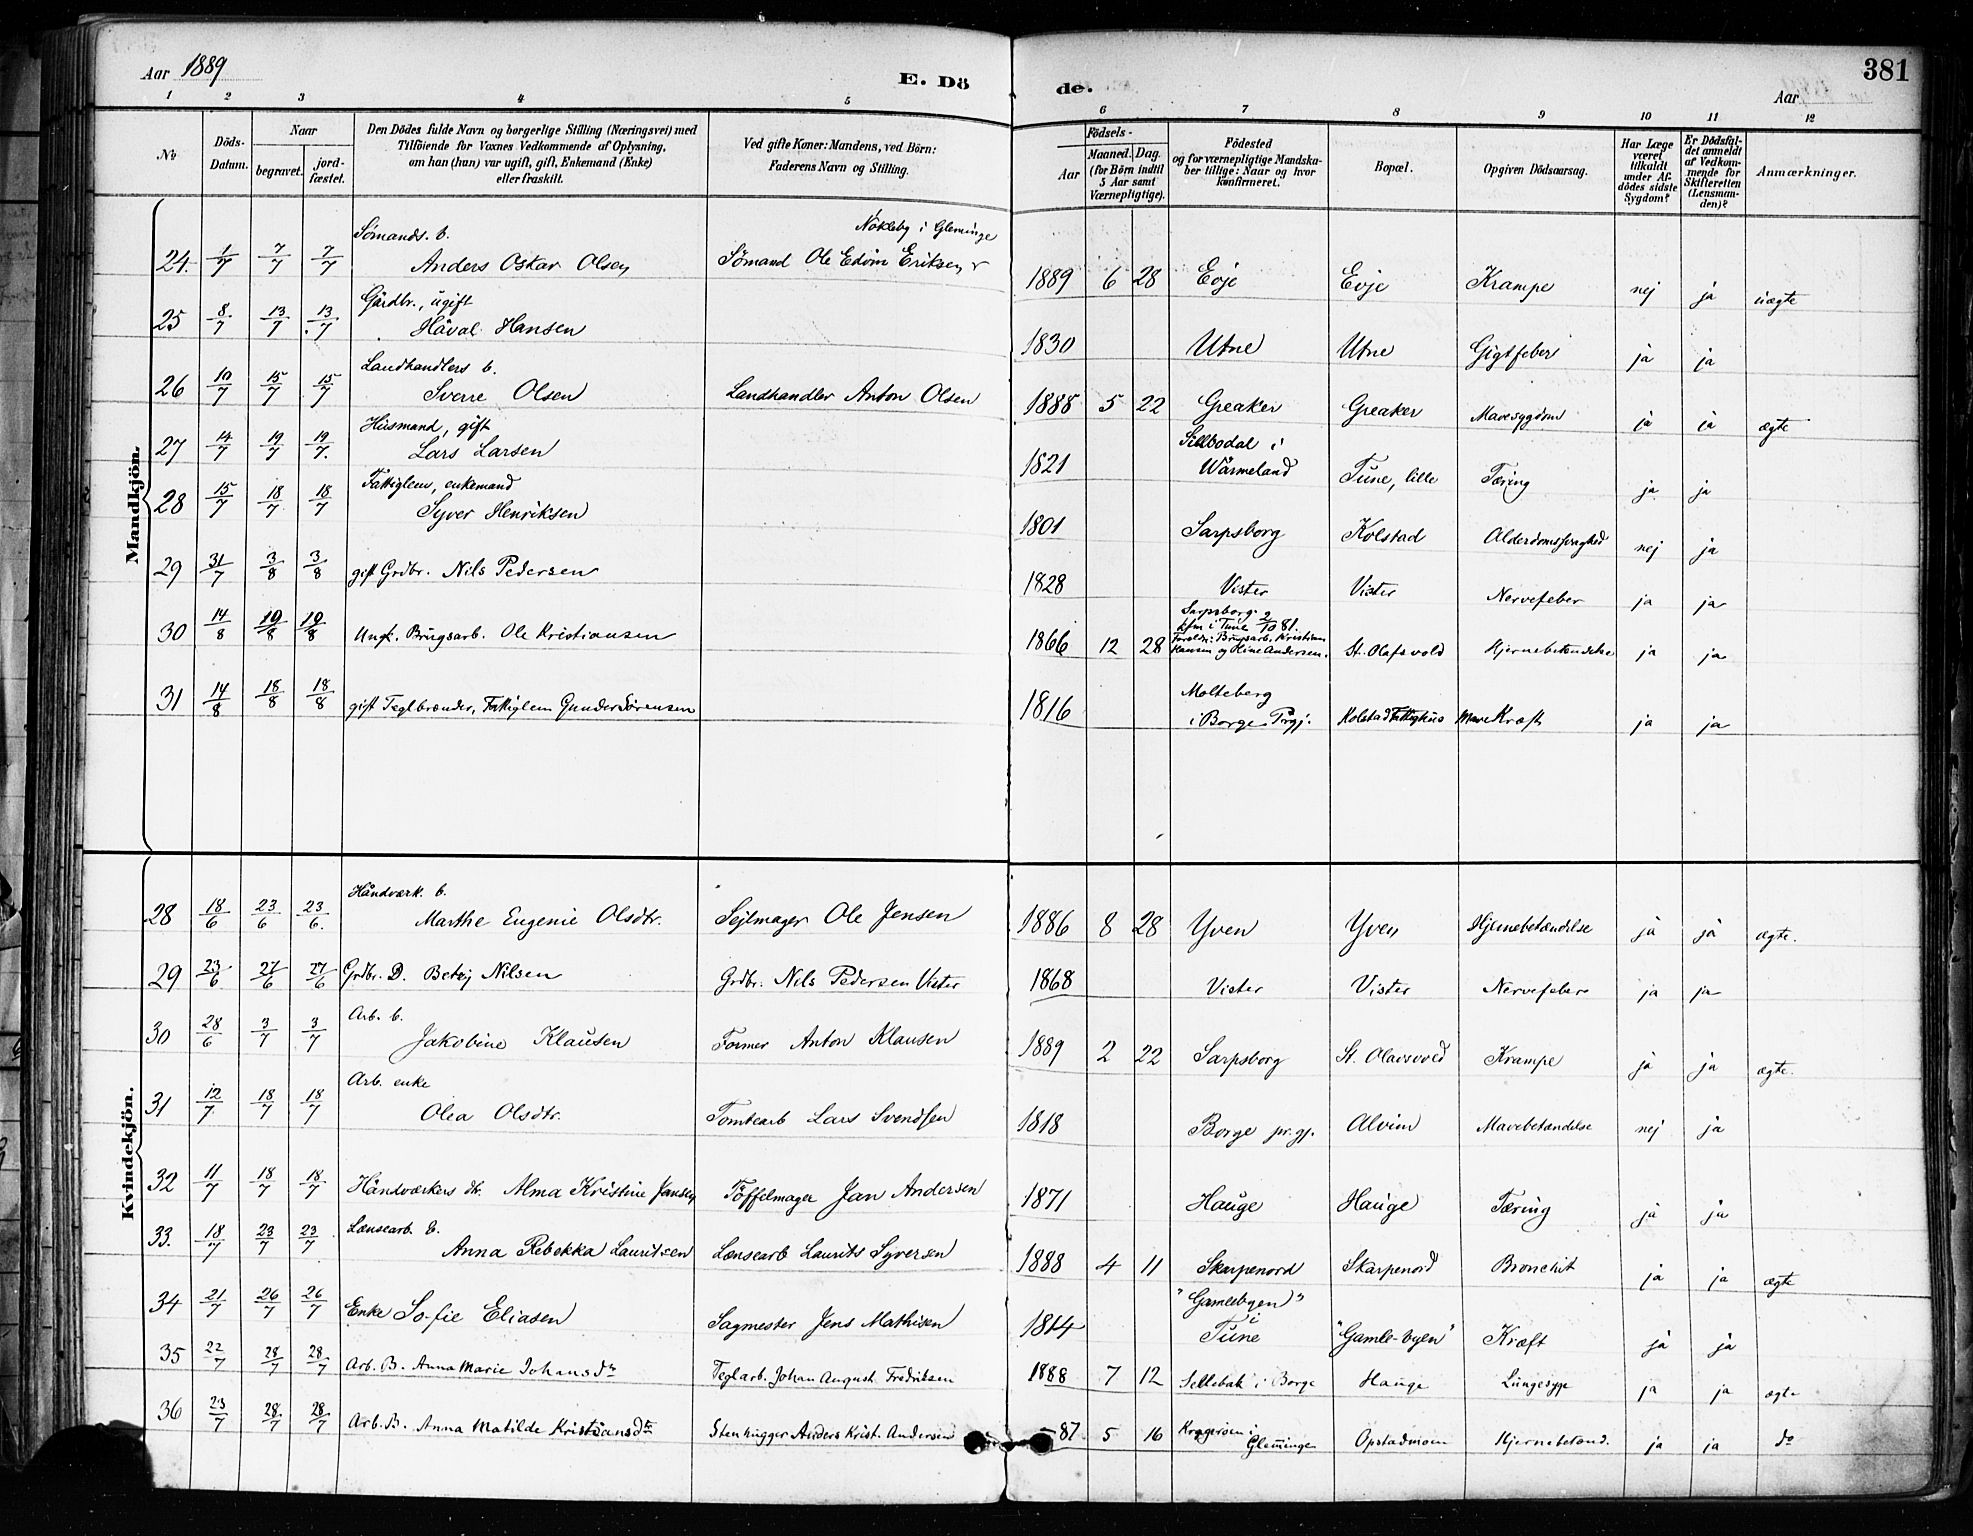 Aar 1889
E. Dö
de.
Aar
381
1 2 3 4 5 6 7 8 9 10 11 12
No
Döds-Datum.
Naar
begravet.
jord-fæstet.
Den Dödes fulde Navn og borgerlige Stilling (Næringsvei) med
Tilföiende for Voxnes Vedkommende af Oplysning,
om han (hun) var ugift, gift, Enkemand (Enke)
eller fraskilt.
Ved gifte Koner: Mandens, ved Börn:
Faderens Navn og Stilling.
Födsels-
Aar
Maaned. Dag.
(for Börn indtil
5 Aar samt
Værnepligtige).
Födested
og for værnepligtige Mandska-
ber tillige: Naar og hvor
konfirmeret.
Bopæl.
Opgiven Dödsaarsag.
Har Læge
været
tilkaldt
under Af-
dödes sidste
Sygdom?
Er Dödsfal-
det anmeldt
af Vedkom-
mende for
Skifteretten
(Lensman-
den)?
Anmærkninger.
Mandkjön.
Sömands. b. Nökleby i Glemminge
24. 1/7 7/7 7/7 Anders Oskar Olsen Sömand Ole Edvin Eriksen 1889 6 28 Evje Evje Krampe nej ja uægte
Gårdbr., ugift
25 8/7 13/7 13/7 Håval Hansen 1830 Utne Utne Gigtfeber ja ja
Landhandlers b.
26 10/7 15/7 15/7 Sverre Olsen Landhandler Anton Olsen 1888 5 22 Greaker Greaker Mavesygdom ja ja ægte
Husmand, gift Sillbodal i
27 14/7 19/7 19/7. Lars Larsen 1821 Wärmeland Tune, lille Tæring ja ja
Fattiglem, enkemand
28 15/7 18/7 18/7 Syver Henriksen 1801 Sarpsborg Kolstad Alderdomssvaghed nej ja
29 31/7 3/8 3/8 gift Grdbr. Nils Pedersen 1828 Vister Vister Nervefeber ja ja
Sarpsborg.
kfm i Tune 2/10 81.
30 14/8 19/8 19/8 Ungk. Brugsarb. Ole Kristiansen 1866 12 28 Foreldr: Brugsarb. Kristian
Hansen og Oline Andersen. St. Olafs vold Hjernebetændelse ja ja
Molteberg
31 14/8 18/8 18/8 gift Teglbrænder, Fattiglem Gunder Sörensen 1816 i Borge Prgj. Kolstad Fattighus Mave Kræft ja ja
Kvindekjön.
Håndværk. b.
28 18/6 23/6 23/6. Marthe Eugenie Olsdtr. Sejlmager Ole Jensen 1886 8 28 Yven Yven Hjernebetændelse ja ja ægte.
29 23/6 27/6 27/6 Grdbr. D. Betsy Nilsen Grdbr. Nils Pedersen Vister 1868 Vister Vister Nervefeber ja ja
Arb. b.
30 28/6 3/7 3/7 Jakobine Klausen Former Anton Klausen 1889 2 22 Sarpsborg St. Olavsvold Krampe ja ja ægte.
Arb. enke
31 12/7 18/7 18/7 Olea Olsdtr. Tomtearb Lars Svendsen 1818 Borge pr.gj. Alvim Mavebetændelse nej ja
32 11/7 18/7 18/7 Håndværkers dtr. Alma Kristine Jansen Töffelmager Jan Andersen 1871 Hauge Hauge Tæring ja ja
Lænsearb. b.
33. 18/7 23/7 23/7 Anna Rebekka Lauritsen Lænsearb Laurits Syversen 1888 4 11 Skarpenord Skarpenord Bronchit ja ja ægte
"Gamlebyen" i
34 21/7 26/7 26/7 Enke Sofie Eliasen Sagmester Jens Mathisen 1814 Tune "Gamle-byen" Kræft ja ja
35 22/7 28/7 28/7 Arb. B. Anna Marie Johansdtr Teglarb. Johan August Fredriksen 1888 7 12 Sellebak i Borge Hauge Lungesyge ja ja ægte
36 23/7 28/7 28/7 Arb. B. Anna Matilde Kristiansdtr Stenhugger Anders Krist. Andersen -87 5 16 Kragerøen i Glemminge Opstadmoen Hjernebetænd. ja ja do